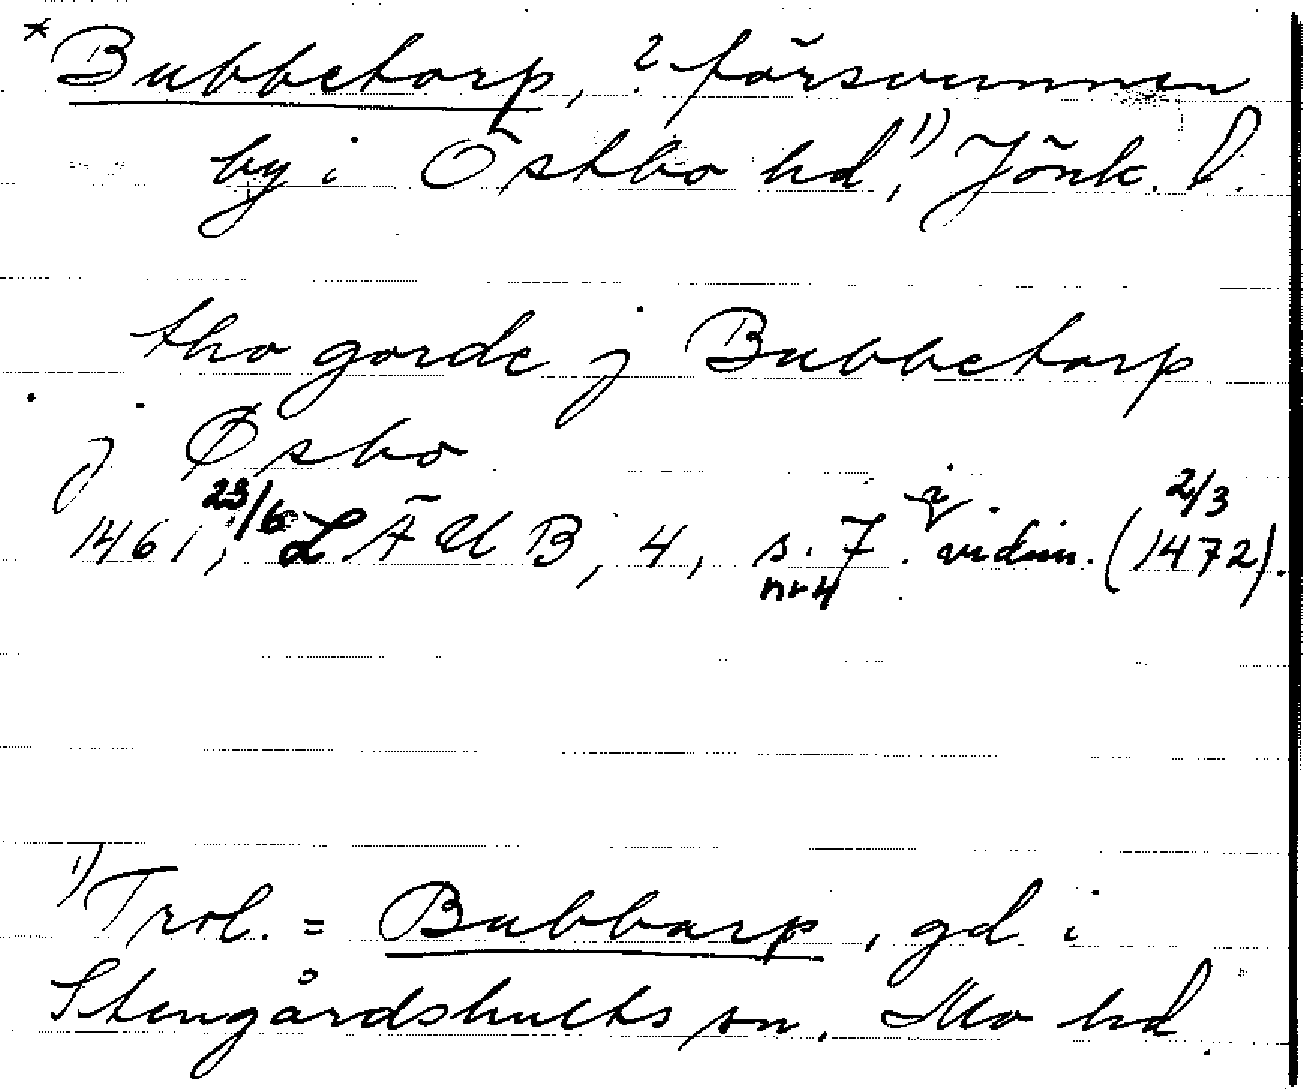 *Bubbetorp, ? försvunnen
by i Östbo hd,¹⁾ Jönk. l.
tho gorde j Bubbetorp
j Øsbo
1461 23/6, LÄUB, 4, s. 7 nr 4 i vidim. (1472 2/3).
¹⁾ Trol. = Bubbarp, gd i
Stengårdshults sn. Mo hd.